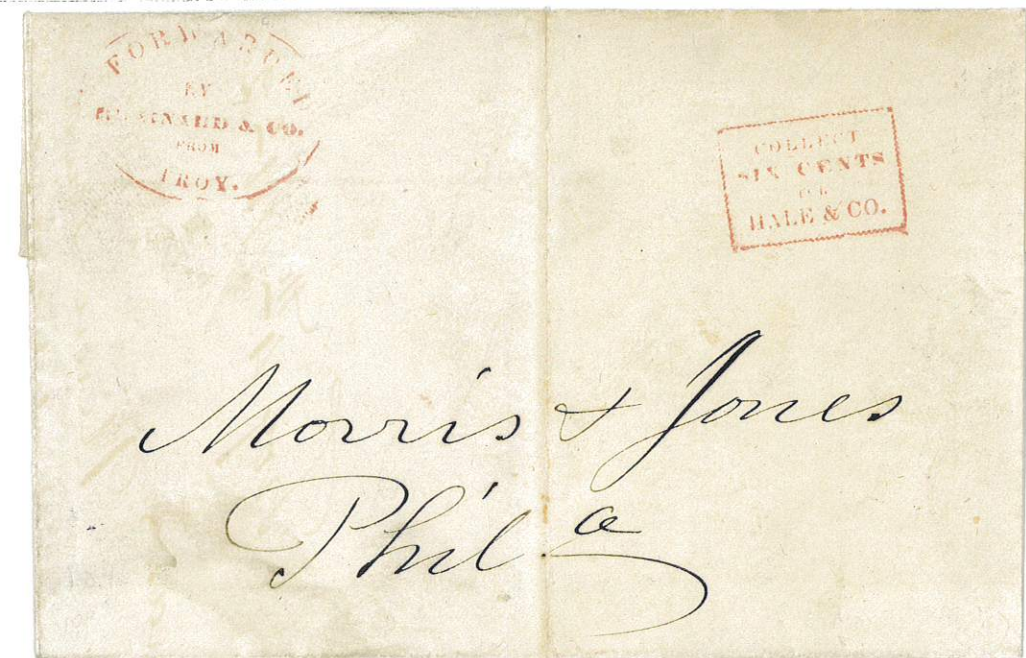 FORWARDED
BY
& CO.
FROM
TROY.
COLLECT
SIX CENTS
FOR
HALE & CO.
Morris & Jones
Phil a